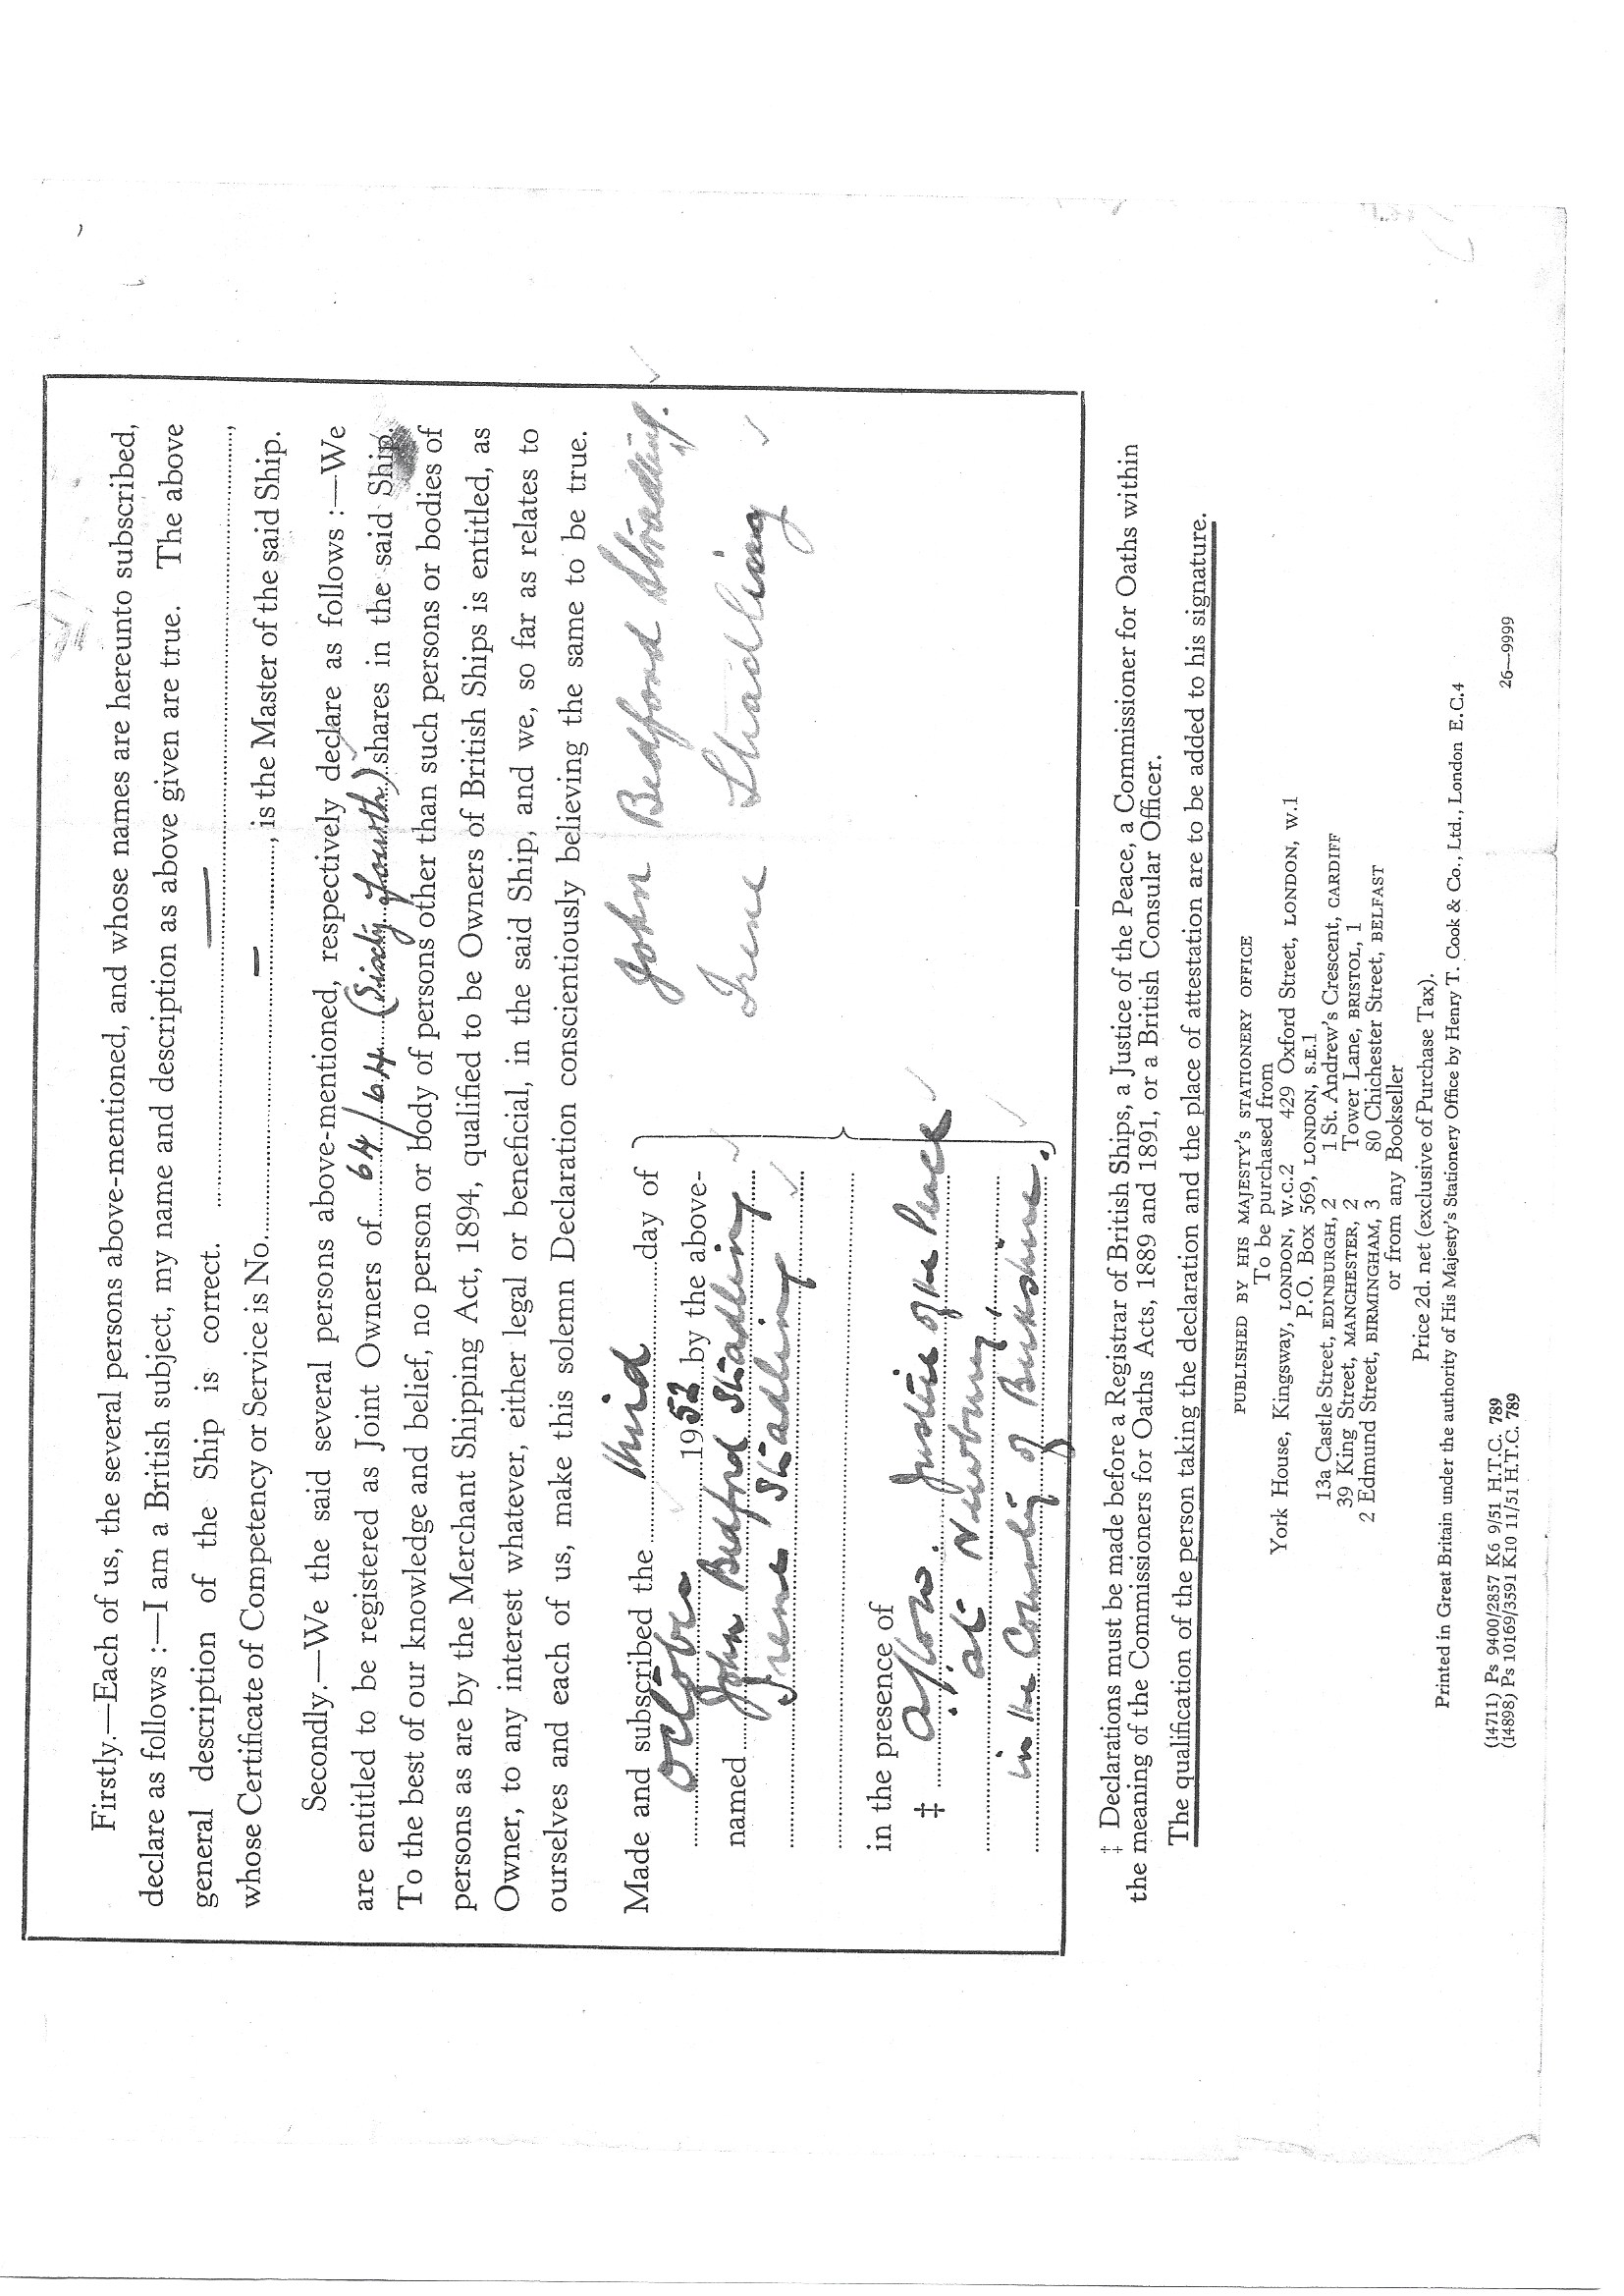 Firstly.—Each of us, the several persons above-mentioned, and whose names are hereunto subscribed,
declare as follows :—I am a British subject, my name and description as above given are true. The above
general description of the Ship is correct. — ,
whose Certificate of Competency or Service is No. — , is the Master of the said Ship.
Secondly.—We the said several persons above-mentioned, respectively declare as follows :—We
are entitled to be registered as Joint Owners of 64/64 (Sixty fourth) shares in the said Ship.
To the best of our knowledge and belief, no person or body of persons other than such persons or bodies of
persons as are by the Merchant Shipping Act, 1894, qualified to be Owners of British Ships is entitled, as
Owner, to any interest whatever, either legal or beneficial, in the said Ship, and we, so far as relates to
ourselves and each of us, make this solemn Declaration conscientiously believing the same to be true.
Made and subscribed the third day of
October 1952 by the above-
named John Bedford Stradling
Irene Stradling
John Bedford Stradling.
Irene Stradling
in the presence of
‡ Justice of the Peace
at Newbury,
in the County of Berkshire.
‡ Declarations must be made before a Registrar of British Ships, a Justice of the Peace, a Commissioner for Oaths within
the meaning of the Commissioners for Oaths Acts, 1889 and 1891, or a British Consular Officer.
The qualification of the person taking the declaration and the place of attestation are to be added to his signature.
PUBLISHED BY HIS MAJESTY'S STATIONERY OFFICE
To be purchased from
York House, Kingsway, LONDON, W.C.2 429 Oxford Street, LONDON, W.1
P.O. Box 569, LONDON, S.E.1
13a Castle Street, EDINBURGH, 2 1 St. Andrew's Crescent, CARDIFF
39 King Street, MANCHESTER, 2 Tower Lane, BRISTOL, 1
2 Edmund Street, BIRMINGHAM, 3 80 Chichester Street, BELFAST
or from any Bookseller
Price 2d. net (exclusive of Purchase Tax).
Printed in Great Britain under the authority of His Majesty's Stationery Office by Henry T. Cook & Co., Ltd., London E.C.4
(14711) Ps 9400/2857 K6 9/51 H.T.C. 789
(14898) Ps 10169/3591 K10 11/51 H.T.C. 789
26—9999